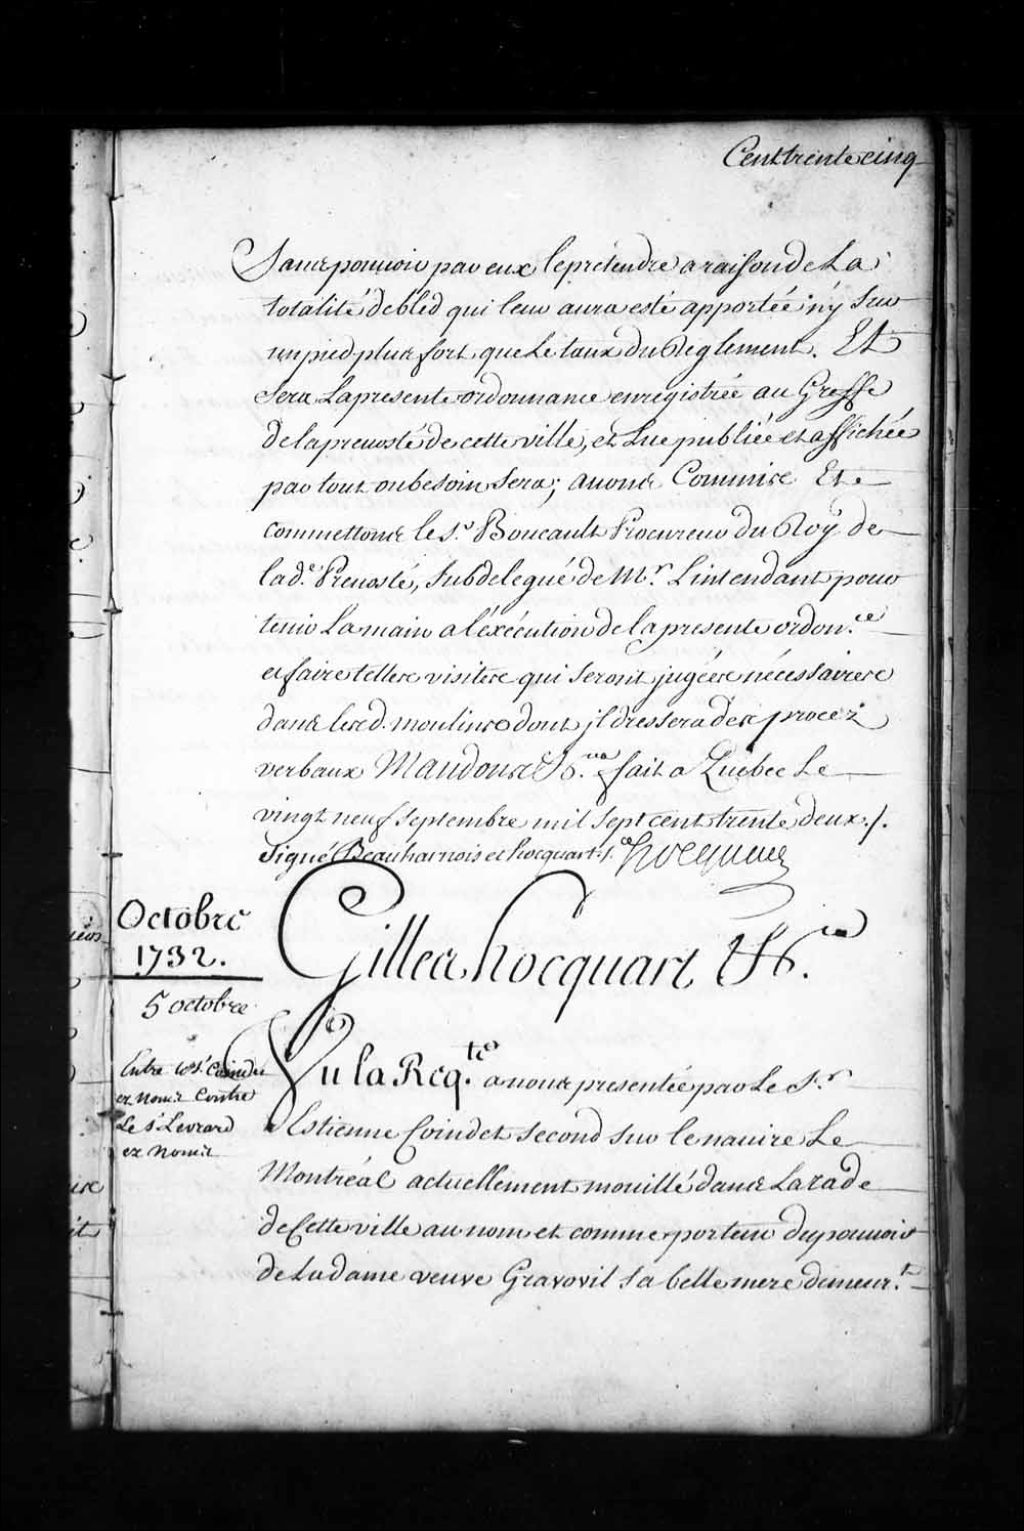 Cent trente cinq
Sans pouvoir par eux le prétendre a raison de La
totalité de bled qui leur aura esté apportée n'y sur
un pied plus fort que Le taux du Reglement. Et
Sera La presente ordonnance enregistrée au Greffe
de la prevosté de cette ville, et Lue publiée et affichée
par tout ou besoin Sera; avons Commis Et
commettons le S.r Boucault Procureur du Roy de
lad.e Prevosté, Subdelegué de M.r L'intendant pour
tenir La main a l'éxécution de la presente ordon.ce
et faire telles visites qui seront jugées nécessaires
dans lesd. moulins dont jl dressera des procez
verbaux Mandons &c.na fait a Québec Le
vingt neuf septembre mil sept cent trente deux ./.
Signé Beauharnois et hocquart ./. hocquart
Octobre
1732.
Gilles hocquart &c.a
5 octobre
Entre le S.r Coindet
ez nom.s Contre
Le S.r Levrard
ez nom.s
Vu la Req.te a nous presentée par Le S.r
Estienne Coindet second sur le navire Le
Montréal actuellement mouillé dans La rade
de Cette ville au nom et comme porteur du pouvoir
de La dame veuve Gravovil sa belle mere demeur.t